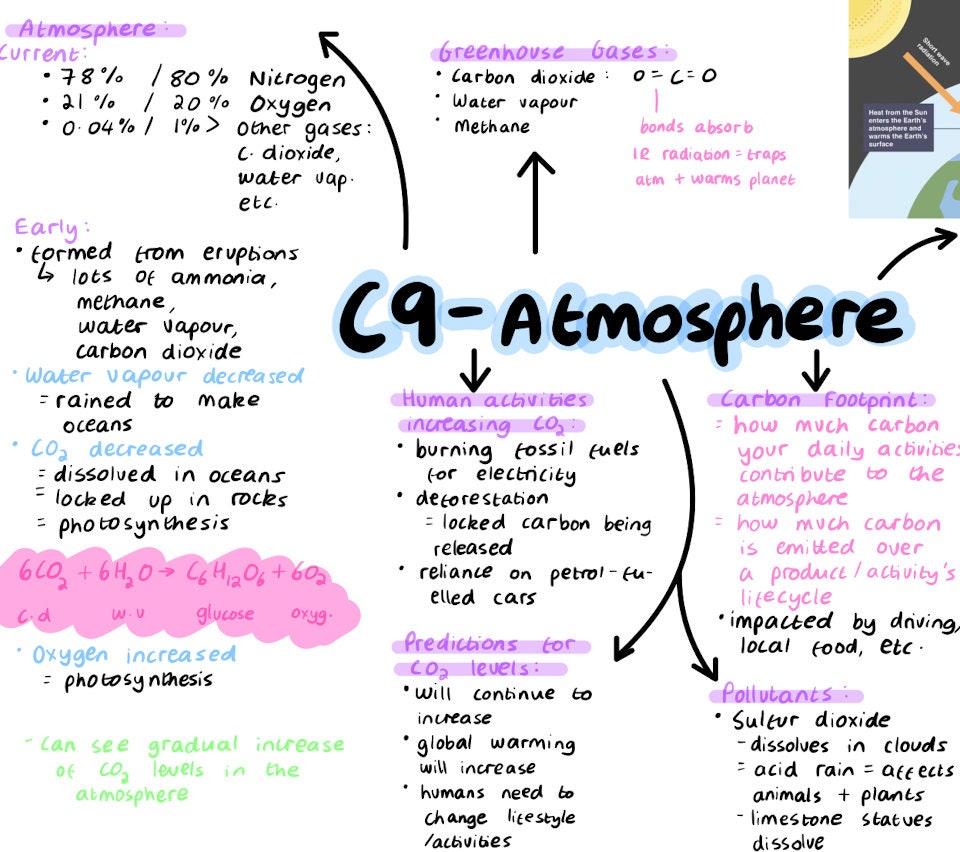 Atmosphere:
Current:
• 78% / 80% Nitrogen
• 21% / 20% Oxygen
• 0.04% / 1%> Other gases:
c. dioxide,
water vap.
etc.
Early:
• formed from eruptions
↳ lots of ammonia,
methane,
water vapour,
carbon dioxide
• Water vapour decreased
= rained to make
oceans
• CO₂ decreased
= dissolved in oceans
= locked up in rocks
= photosynthesis
6CO₂ + 6H₂O → C₆H₁₂O₆ + 6O₂
c.d w.v glucose oxyg.
• Oxygen increased
= photosynthesis
- Can see gradual increase
of CO₂ levels in the
atmosphere
Greenhouse Gases:
• Carbon dioxide: O=C=O
• Water vapour
• Methane
bonds absorb
IR radiation = traps
atm + warms planet
Short wave
radiation
Heat from the Sun
enters the Earth's
atmosphere and
warms the Earth's
surface
C9 - Atmosphere
Human activities
increasing CO₂:
• burning fossil fuels
for electricity
• deforestation
= locked carbon being
released
• reliance on petrol-fu-
elled cars
Predictions for
CO₂ levels:
• will continue to
increase
• global warming
will increase
• humans need to
change lifestyle
/activities
Carbon Footprint:
= how much carbon
your daily activities
contribute to the
atmosphere
= how much carbon
is emitted over
a product/activity's
lifecycle
• impacted by driving,
local food, etc.
Pollutants:
• Sulfur dioxide
- dissolves in clouds
= acid rain = affects
animals + plants
- limestone statues
dissolve